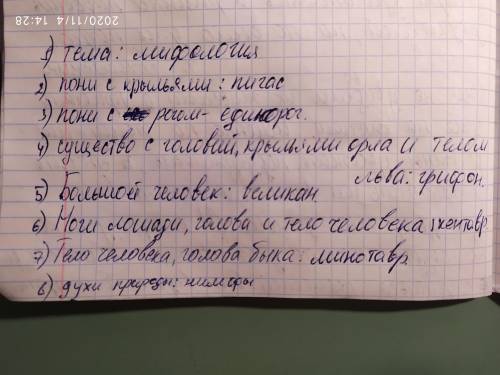 2020/11/4 14:28
1) тема: мифология
2) пони с крыльями: пигас
3) пони с рогом - единорог.
4) существо с головий, крыльями орла и телом
льва: грифон.
5) Большой человек: великан
6) Ноги лошади, голова и тело человека: кентавр.
7) Тело человека, голова быка: минотавр.
8) духи природы: нимфы